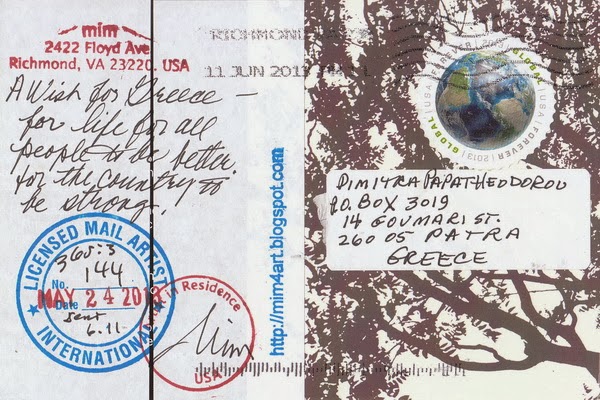 mim
2422 Floyd Ave
Richmond, VA 23220, USA
A Wish for Greece –
for life for all
people to be better
for the country to
be strong.
LICENSED MAIL ARTIST
INTERNATIONAL
365:3
No. 144
MAY 24 201
Date
sent
6.11
In Residence
Mim
USA
http://mim4art.blogspot.com
RICHMOND
11 JUN 201
GLOBAL | USA | FOREVER | 2013 | GLOBAL | USA | FOREVER
DIMITRA PAPATHEODOROU
P.O. BOX 3019
14 GOUMARI ST.
260 05 PATRA
GREECE